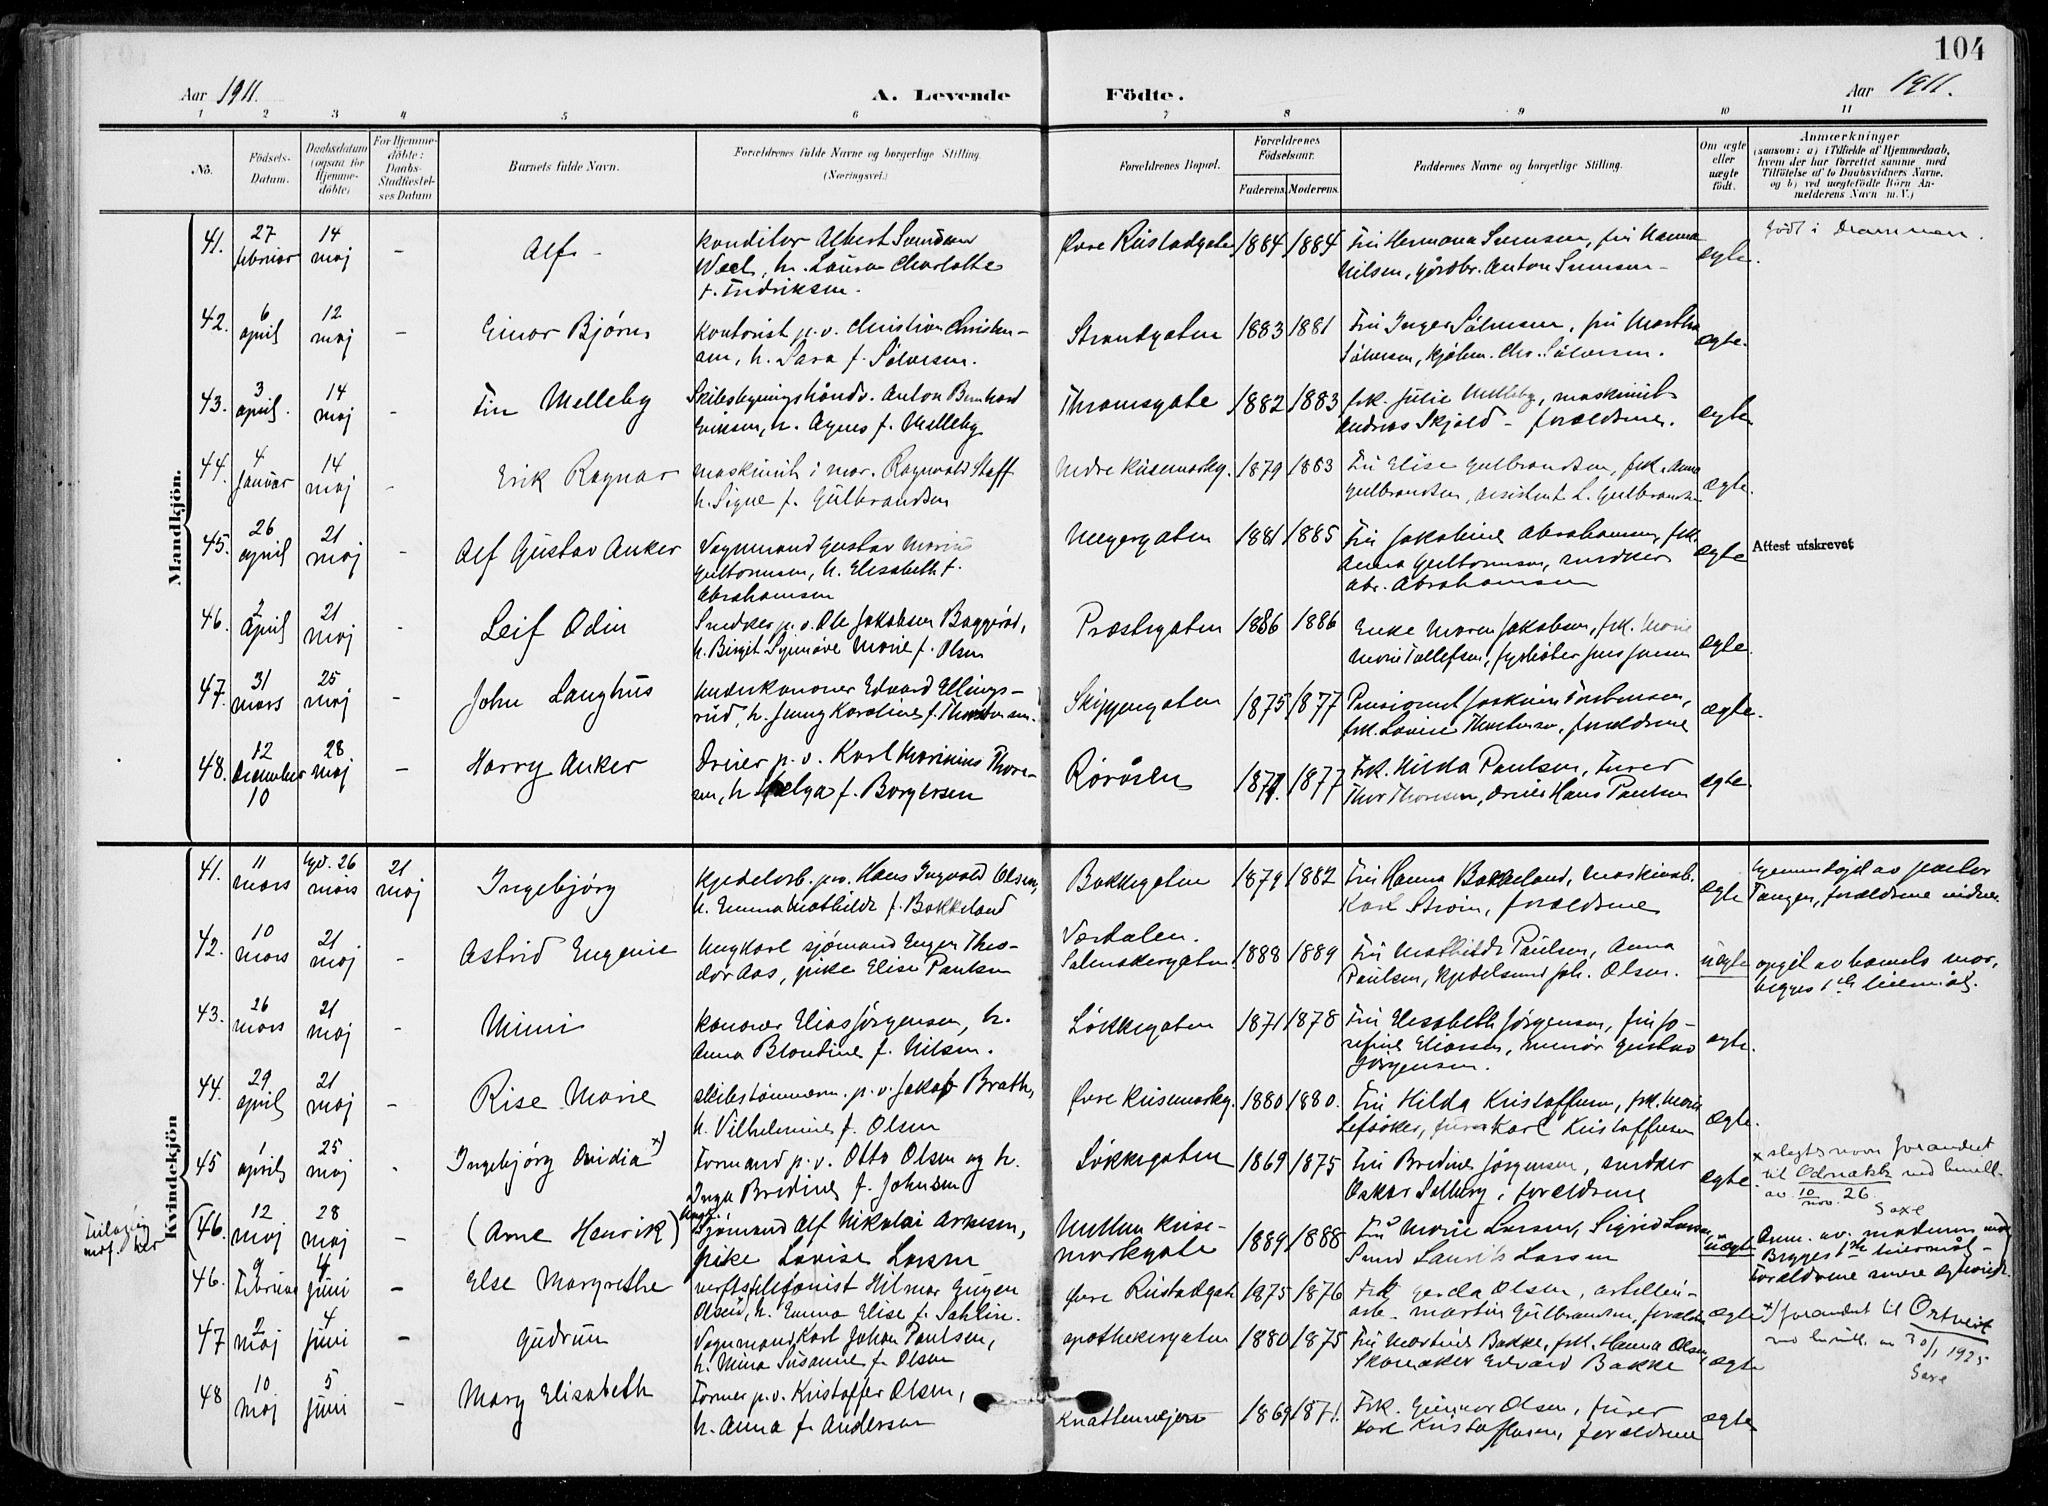 104
Aar 1911. A. Levende Födte. Aar 1911.
1 2 3 4 5 6 7 8 9 10 11
No. Födsels-Datum. Daabsdatum (ogsaa for Hjemme-döbte) For Hjemme-döbte: Daabs-Stadfæstel-ses Datum Barnets fulde Navn. Forældrenes fulde Navne og borgerlige Stilling. (Næringsvei.) Forældrenes Bopæl. Forældrenes Födselsaar. Faderens. Moderens. Faddernes Navne og borgerlige Stilling. Om ægte eller uægte födt. Anmærkninger
(saasom: a) i Tilfælde af Hjemmedaab,
hvem der har forrettet samme, med
Tilföielse af to Daabsvidners Navne,
og b) ved uægtefödte Börn An-
melderens Navn m. V.)
Mandkjön.
41. 27 februar 14 maj - Alf - Konditor Albert Svendsen
Weel, h. Laura Charlotte
f. Fredriksen. Øvre Rustadgaten 1884 1884 Fru Hermana Svensen, fru Hanna
Nilsen, gårdbr. Anton Svensen - ægte. født i Drammen.
42. 6 april 12 maj - Einar Bjørn Kontorist p.v. Christian Christen-
sen, h. Sara f. Salvesen. Strandgaten 1883 1881 Fru Inger Salvesen, fru Martha
Salvesen, kjøbm. Chr. Salvesen. ægte.
43. 3 april. 14 maj - Finn Melleby Skibsbygningshåndv. Anton Bernhard
Eriksen, h. Agnes f. Melleby Thranesgate 1882 1883 frk. Julie Melleby, maskinist
Andreas Skjold - forældrene. ægte
44. 4 Januar 14 maj - Erik Ragnar maskinist i mar. Ragnvald Staff
h. Signe f. Gulbrandsen Nedre Keisemarkg. 1879 1883 Fru Elise Gulbrandsen, frk. Anna
Gulbrandsen, assistent L. Gulbrandsen ægte.
45. 26 april 21 maj - Alf Gustav Anker Vognmand Gustav Marius
Guttormsen, h. Elisabeth f.
Abrahamsen Meyergaten 1881 1885 Fru Jakobine Abrahamsen, frk.
Anna Guttormsen, snedker
Abr. Abrahamsen ægte Attest utskrevet
46. 2 April 21 maj - Leif Odin Snedker p.v. Ole Jakobsen Baggerød,
h. Birgit Synnøve Marie f. Olsen Præstegaten 1886 1886 Enke Maren Jakobsen, frk. Marie
Marie Tollefsen, fyrbøter Jens Jensen ægte.
47. 31 mars 25 maj - John Langhus Underkanoner Edvard Ellings-
rud, h. Jenny Karoline f. Thorstensen. Skippergaten 1875 1877 Pensionist Joakim Torstensen,
frk. Lovise Thorstensen, forældrene ægte.
48. 12 December 10 28 maj - Harry Anker Dreier p.v. Karl Marinius Thore-
sen, h. Helga f. Borgersen Røråsen 1877 Frk. Hilda Paulsen, Furer
Thor Thoresen, dreier Hans Paulsen ægte.
Kvindekjön
41. 11 mars Hjd. 26 mars 21 maj Ingebjørg Kjedelarb. p.v. Hans Ingvald Olsen,
h. Emma Mathilde f. Bakkeland Bakkegaten 1879 1882 Fru Hanna Bakkeland, Maskinarb.
Karl Strøm, forældrene ægte Hjemmedøpt av pastor
Tangen, forældrene vidner
42. 10 mars 21 maj - Astrid Eugenie Ungkarl sjømand Eugen Theo-
dor Aas, pike Elise Paulsen Værdalen.
Salmakergaten. 1888 1889 Fru Mathilde Paulsen, Anna
Paulsen, kjedelsmed Joh. Olsen. uægte opgit av barnets mor,
begges 1ste leiermål.
43. 26 mars 21 maj - Mimi Kanoner Elias Jørgensen, h.
Anna Blondine f. Nilsen. Løkkegaten 1871 1878 Fru Elisabeth Jørgensen, Fru Jo-
refine Eliassen, minør Gustav
Jørgensen. ægte.
44. 29 april 21 maj - Rise Marie skibstømmerm. p.v. Jakob Brath,
h. Vilhelmine f. Olsen Øvre Keisemarkg. 1880 1880. Fru Hilda Kristoffersen, frk. Marie
Lefsåker, furer Karl Kristoffersen ægte.
45 1 april 25 maj - Ingebjørg Ovidia x) Formand p.v. Otto Olsen og h.
Inga Bredine f. Johnsen Løkkegaten 1869 1875 Fru Bredine Jørgensen, snedker
Oskar Solberg, forældrene ægte. x slegtsnavn forandret
til Odnakk ved bevill.
av 10/nov. 26.
Saxe
Feilagtig indf. her (46. 12 maj 28 maj - (Arne Henrik) Ungk. Sjømand Alf Nikolai Arnesen,
pike Lovise Larsen Mellem Keise-
markgate 1889 1888 Fru Marie Larsen, Sigrid Larsen
Smed Laurits Larsen uægte Anm. av moderen med
Begges 1ste leiermål -
Forældrene senere egteviet.
46. 9 Februar 4 juni - Else Margrethe verftstelefonist Hilmar Eugen
Olsen, h. Emma Elise f. Sahlin. Øvre Rustadgat. 1875 1876 Frk. Gerda Olsen, artilleri-
arb. Martin Gulbrandsen, forældr. ægte x) forandret til Ortveit
ved bevill. av 30/1 1925
Saxe
47 2 maj 4 juni - Gudrun Vognmand Karl Johan Paulsen,
h. Mina Susanne f. Olsen Apothekergaten 1880 1875 Fru Martine Bakke, frk. Hanna Olsen,
Skomaker Edvard Bakke ægte
48 10 maj 5 juni - Mary Elisabeth Former p.v. Kristoffer Olsen,
h. Anna f. Andersen Knattenvejen 1869 1871. Frk. Gunvor Olsen, furer
Karl Kristoffersen, forældrene ægte